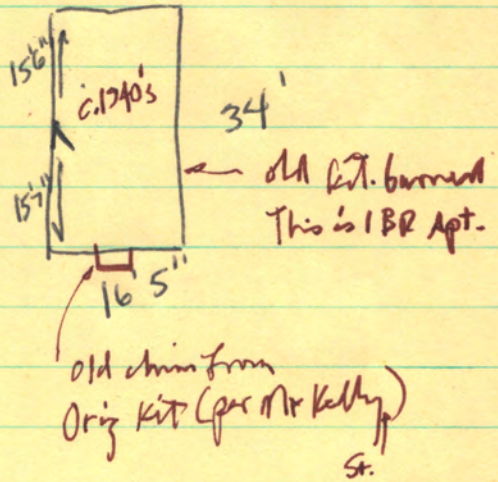 15'6"
c.1940's
34'
15'7"
old kit. burned
This is 1 BR Apt.
16' 5"
old chim from
Orig Kit (per Mr Kelly)
St.